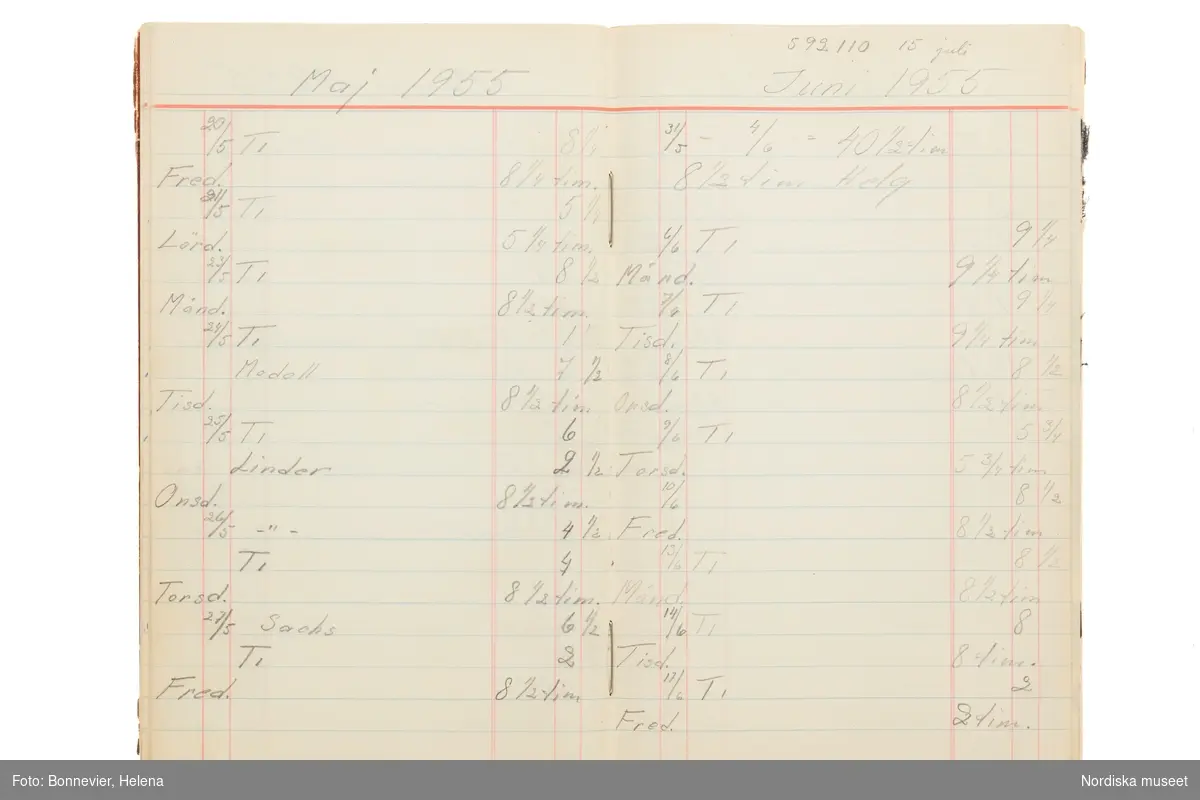 Maj 1955
20/5 T1 8 1/4
Fred. 8 1/4 tim.
21/5 T1 5 1/4
Lörd. 5 1/4 tim.
23/5 T1 8 1/2
Månd. 8 1/2 tim.
24/5 T1 1
Modell 7 1/2
Tisd. 8 1/2 tim.
25/5 T1 6
Linder 2 1/2
Onsd. 8 1/2 tim.
26/5 -"- 4 1/2
T1 4
Torsd. 8 1/2 tim.
27/5 Sachs 6 1/2
T1 2
Fred. 8 1/2 tim
592110 15 juli
Juni 1955
31/5 - 4/6 = 40 1/2 tim
8 1/2 tim Helg
6/6 T1 9 1/4
Månd. 9 1/4 tim
7/6 T1 9 1/4
Tisd. 9 1/4 tim
8/6 T1 8 1/2
Onsd. 8 1/2 tim
9/6 T1 5 3/4
Torsd. 5 3/4 tim
10/6 8 1/2
Fred. 8 1/2 tim
13/6 T1 8 1/2
Månd. 8 1/2 tim
14/6 T1 8
Tisd. 8 tim.
17/6 T1 2
Fred. 2 tim.
Foto: Bonnevier, Helena
Nordiska museet